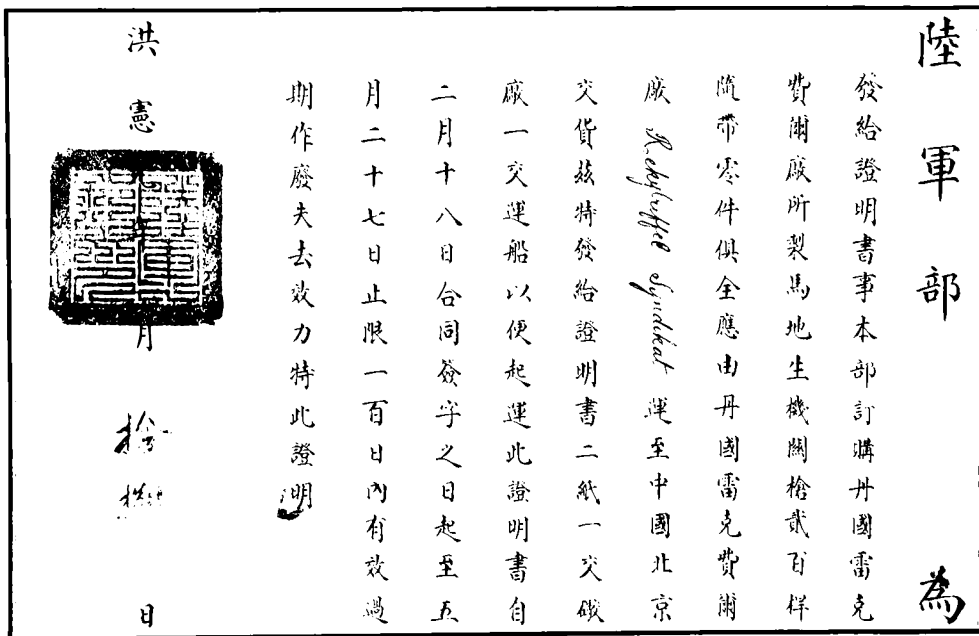 陸軍部為
發給證明書事本部訂購丹國雷克
費爾廠所製馬地生機關槍貳百样
隨帶零件俱全應由丹國雷克費爾
廠 Rekylriffel Syndikat 運至中國北京
交貨茲特發給證明書二紙一交礮
廠一交運船以便起運此證明書自
二月十八日合同簽字之日起至五
月二十七日止限一百日內有效過
期作廢失去效力特此證明
洪憲元年月拾日